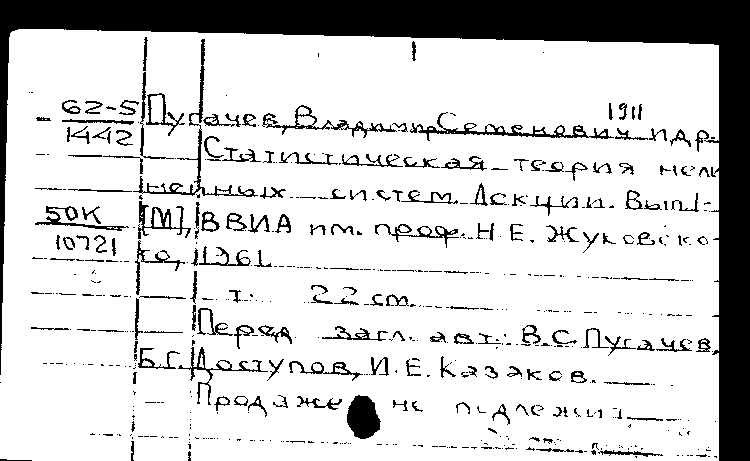 1911
62-5 Пугачев, Владимир Семенович и др.
1442 Статистическая теория нели
нейных систем. Лекции. Вып 1-
50К [М], ВВИА им. проф. Н.Е. Жуковско-
10721 го, 1961
т. 22 см.
Перед загл. авт.: В.С. Пугачев,
Б.Г. Доступов, И.Е. Казаков.
Продаже не подлежит.